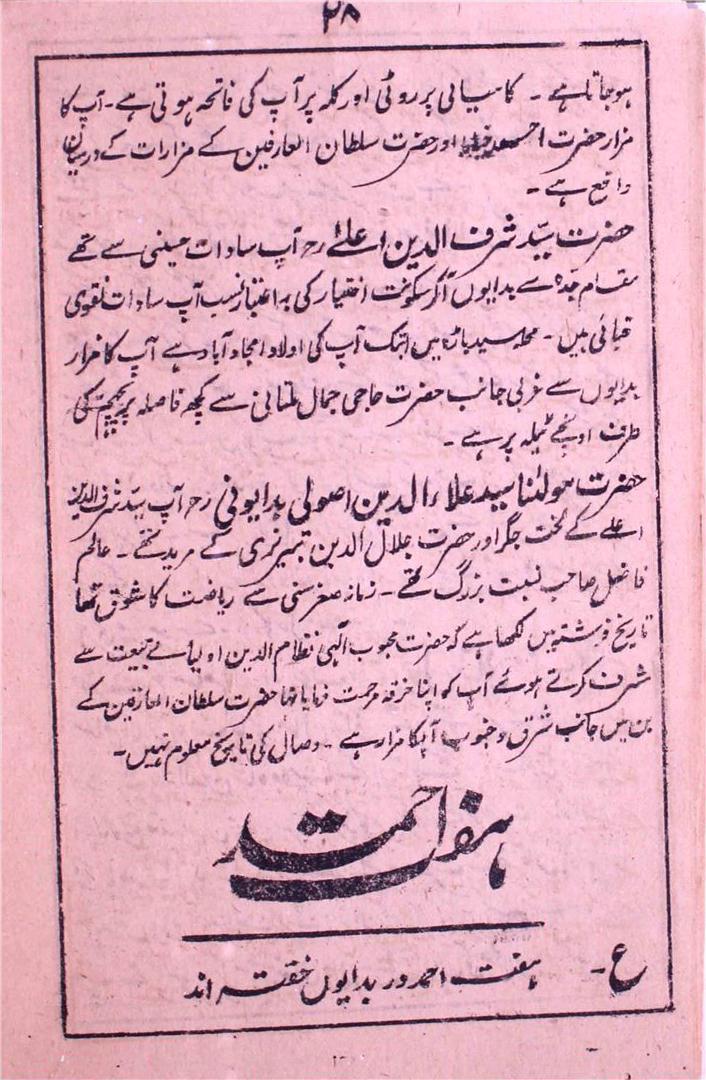 ۲۸
ہوجاتا ہے۔ کامیابی پر روٹی اور کلہ پر آپ کی فاتحہ ہوتی ہے۔ آپ کا
مزار حضرت احمد اور حضرت سلطان العارفین کے مزارات کے درمیان
واقع ہے۔
حضرت سیّد شرف الدین اعلےٰ رح آپ سادات حسینی سے تھے
مقام جدہ سے بدایوں آکر سکونت اختیار کی بہ اعتبار نسب آپ سادات نقوی
قبائی ہیں۔ محلہ سید باڑہ میں ابتک آپ کی اولاد امجاد آباد ہے آپ کا مزار
بدایوں سے غربی جانب حضرت حاجی جمال ملتانی سے کچھ فاصلہ پر پچھم کی
طرف اونچے ٹیلہ پر ہے۔
حضرت مولٰنا سید علاء الدین اصولی بدایونی رح آپ سید شرف الدین
اعلے کے لخت جگر اور حضرت جلال الدین تبریزی کے مرید تھے۔ عالم
فاضل صاحب نسبت بزرگ تھے۔ زمانہ صغر سنی سے ریاضت کا شوق تھا
تاریخ فرشتہ میں لکھا ہے کہ حضرت محبوب الٰہی نظام الدین اولیا نے بیعت سے
مشرف کرتے ہوئے آپ کو اپنا خرقہ مرحمت فرمایا تھا حضرت سلطان العارفین کے
بن میں جانب شرق و جنوب آپکا مزار ہے۔ وصال کی تاریخ معلوم نہیں۔
ہفت احمد
ع۔ ہفت احمد در بدایوں خفتہ اند